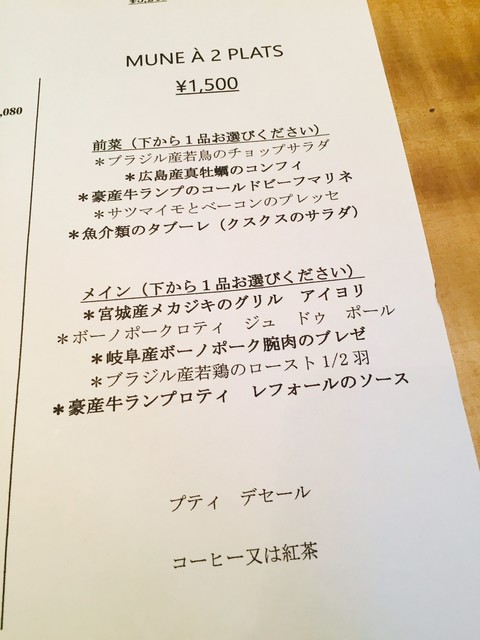 ,080
MUNE À 2 PLATS
¥1,500
前菜（下から１品お選びください）
＊ブラジル産若鳥のチョップサラダ
＊広島産真牡蠣のコンフィ
＊豪産牛ランプのコールドビーフマリネ
＊サツマイモとベーコンのプレッセ
＊魚介類のタブーレ（クスクスのサラダ）
メイン（下から１品お選びください）
＊宮城産メカジキのグリル　アイヨリ
＊ボーノポークロティ　ジュ　ドゥ　ポール
＊岐阜産ボーノポーク腕肉のブレゼ
＊ブラジル産若鶏のロースト 1/2 羽
＊豪産牛ランプロティ　レフォールのソース
プティ　デセール
コーヒー又は紅茶